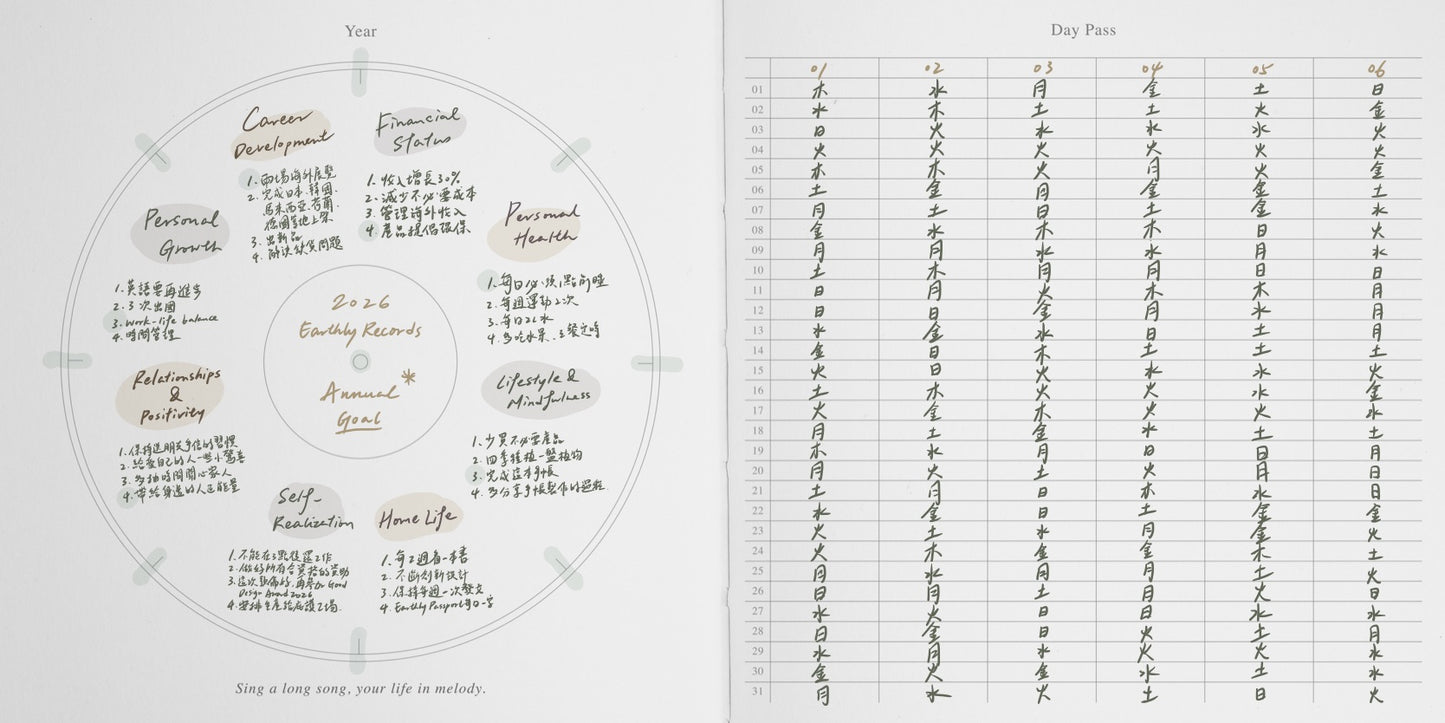 Year
Career
Development
1. 兩場海外展覽
2. 完成日本、韓國、
馬來西亞、荷蘭、
德國等地上架
3. 出新品
4. 解決缺貨問題
Financial
Status
1. 收入增長30%
2. 減少不必要成本
3. 管理海外收入
4. 產品提倡環保
Personal
Growth
1. 英語要再進步
2. 3次出國
3. Work-life balance
4. 時間管理
Personal
Health
1. 每日必須1點前睡
2. 每週運動2次
3. 每日2L水
4. 多吃水果、3餐定時
2026
Earthly Records
Annual*
Goal
Relationships
&
Positivity
1. 保持送朋友手信的習慣
2. 給愛自己的人一些小驚喜
3. 多抽時間關心家人
4. 帶給身邊的人正能量
Lifestyle &
Mindfulness
1. 少買不必要產品
2. 四季種植一盤植物
3. 完成這本手帳
4. 多分享手帳製作的過程
Self-
Realization
1. 不能在3點後還工作
2. 做好所有合資格的資助
3. 這次點備好，再參加 Good
Design Award 2026
4. 安排生產給庇護工場
Home Life
1. 每2週看一本書
2. 不斷創新設計
3. 保持每週一次發文
4. Earthly Passport 每日一字
Sing a long song, your life in melody.
Day Pass
01 02 03 04 05 06
01 木 水 月 金 土 日
02 水 木 土 土 火 金
03 日 火 水 水 水 火
04 火 火 火 火 火 火
05 木 木 火 月 火 金
06 土 金 月 金 金 土
07 月 土 日 土 金 水
08 金 水 木 木 日 火
09 月 月 水 水 月 水
10 土 木 月 月 日 日
11 日 月 火 木 木 月
12 日 日 金 月 水 月
13 水 金 水 日 土 月
14 金 日 木 土 土 土
15 火 日 火 水 水 火
16 土 木 火 火 水 金
17 火 金 木 火 火 水
18 月 土 金 水 土 土
19 木 水 月 日 日 月
20 月 火 土 火 月 日
21 土 月 日 木 水 日
22 水 金 日 土 金 金
23 火 土 水 月 金 火
24 火 木 金 金 木 土
25 月 水 月 月 土 火
26 日 月 土 月 火 日
27 水 火 日 日 水 水
28 日 金 日 火 土 月
29 水 月 水 火 火 水
30 金 火 金 水 土 水
31 月 水 火 土 日 火